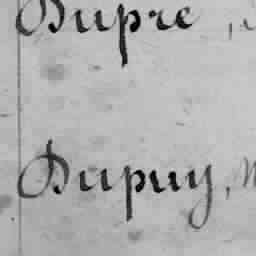 Dupre,
Dupuy,